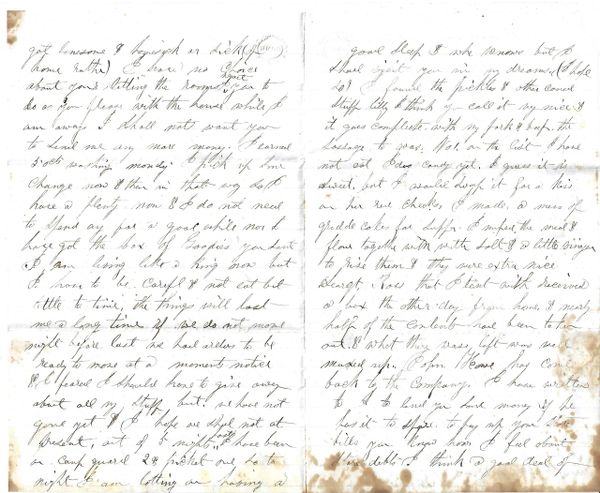 got lonesome & homesick or sick (of
home rather) I have no choice
about your letting the rooms next year to
do as you please with the house while I
am away I shall not want you
to send me any more money. I earned
5 cts washing monday. I pick up some
change now & then in that way so I
have a plenty now & I do not need
to spend any for a good while now I
have got the box of goodies you sent
I am living like a king now but
I have to be careful & not eat but
little to time, the things will last
me a long time if we do not move
night before last we had orders to be
ready to move at a moments notice
& I feared I should have to give away
about all my stuff but we have not
gone yet & I hope we shall not at
present, out of 5 nights I have been
on camp guard 2 & picket one, so to
night I am lotting on having a
good sleep & who knows but I
shall visit you in my dreams (I hope
so) I found the pickles & the
stuff I think you call it very nice &
it goes complete with my pork & beef. the
sausage to was No 1. on the list I have
not eat candy yet. I guess it is
sweet, but I would swap it for a kiss
on her red cheeks I made a mess of
griddle cakes for supper. I mixed the meal &
flour together with salt & a little vinegar
to raise them & they were extra nice
Sergt. that I tent with received
a box the other day from home, & nearly
half of the contents had been taken
out & what they was, left was well
mussed up. has come
back to the Company. I have written
to to lend you some money if he
has it to spare. to pay up your
bills you know how I feel about
debts I think a good deal of